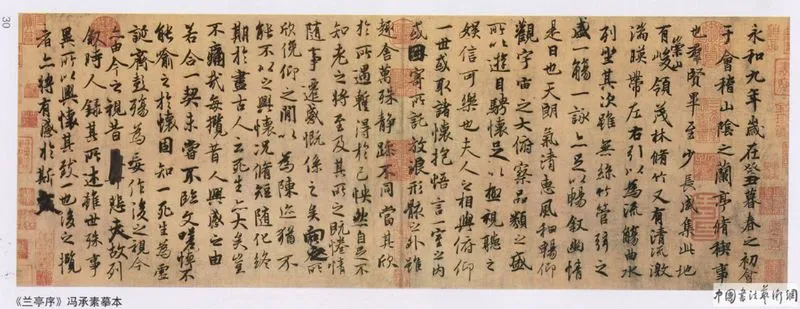 永和九年歲在癸丑暮春之初會
于會稽山陰之蘭亭脩稧事
也羣賢畢至少長咸集此地
有崇山峻領茂林脩竹又有清流激
湍暎帶左右引以為流觴曲水
列坐其次雖無絲竹管弦之
盛一觴一詠亦足以暢敘幽情
是日也天朗氣清惠風和暢仰
觀宇宙之大俯察品類之盛
所以遊目騁懷足以極視聽之
娛信可樂也夫人之相與俯仰
一世或取諸懷抱悟言一室之內
或因寄所託放浪形骸之外雖
趣舍萬殊靜躁不同當其欣
於所遇蹔得於己怏然自足不
知老之將至及其所之既惓情
隨事遷感慨係之矣向之所
欣俛仰之閒以為陳迹猶不
能不以之興懷況脩短隨化終
期於盡古人云死生亦大矣豈
不痛哉每攬昔人興感之由
若合一契未嘗不臨文嗟悼不
能喻之於懷固知一死生為虛
誕齊彭殤為妄作後之視今
亦由今之視昔悲夫故列
敘時人錄其所述雖世殊事
異所以興懷其致一也後之攬
者亦將有感於斯文
30
《兰亭序》冯承素摹本
中國書法藝術網